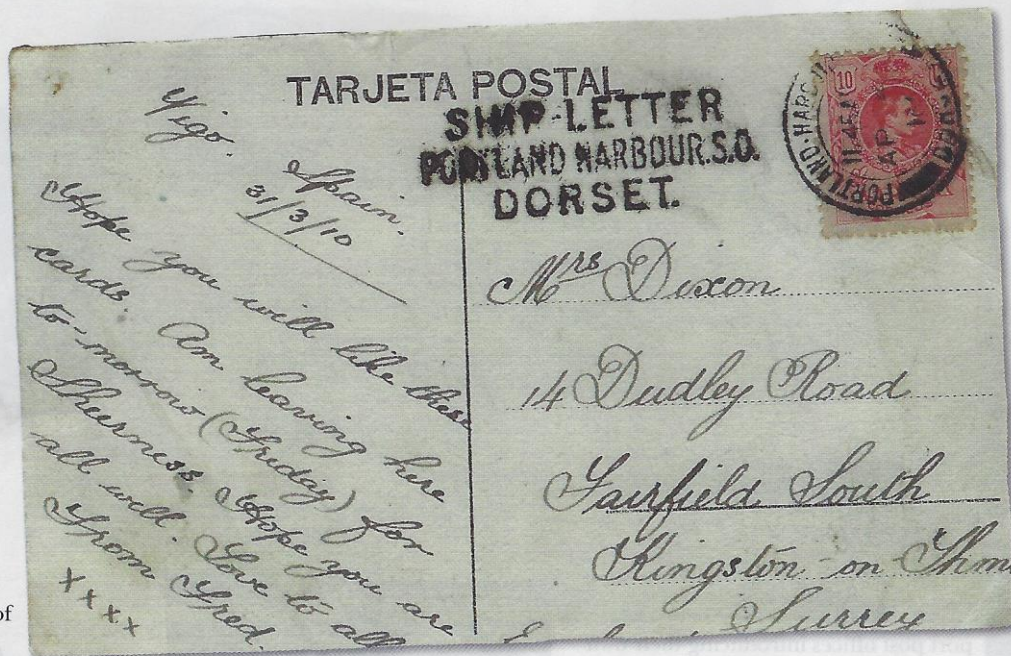 TARJETA POSTAL
SHIP-LETTER
PORTLAND HARBOUR.S.O.
DORSET.
10
PORTLAND-HARBOUR
11.45A
AP
10
Vigo.
Spain.
31/3/10
Hope you will like these
cards. Am leaving here
to-morrow (Friday) for
Sheerness. Hope you are
all well. Love to all
From Fred.
x x x x
Mrs Dixon
14 Dudley Road
Fairfield South
Kingston-on Thm
Surrey
of